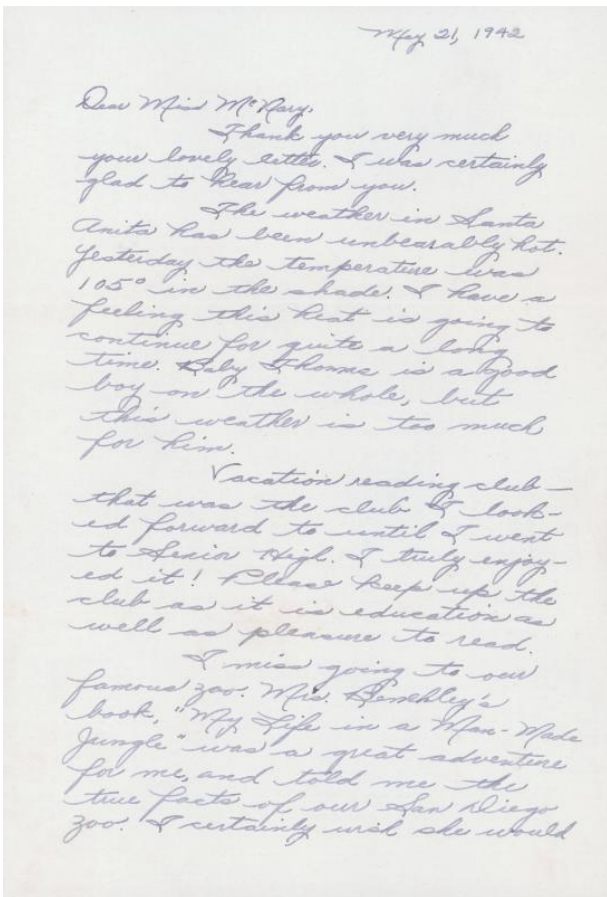 May 21, 1942
Dear Miss McNary,
Thank you very much
your lovely letter. I was certainly
glad to hear from you.
The weather in Santa
Anita has been unbearably hot.
Yesterday the temperature was
105° in the shade. I have a
feeling this heat is going to
continue for quite a long
time. Baby Thomas is a good
boy on the whole, but
this weather is too much
for him.
Vacation reading club—
that was the club I look-
ed forward to until I went
to Senior High. I truly enjoy-
ed it! Please keep up the
club as it is education as
well as pleasure to read.
I miss going to our
famous zoo. Mrs.
book, "My Life in a Man-Made
Jungle" was a great adventure
for me, and told me the
true facts of our San Diego
zoo. I certainly wish she would